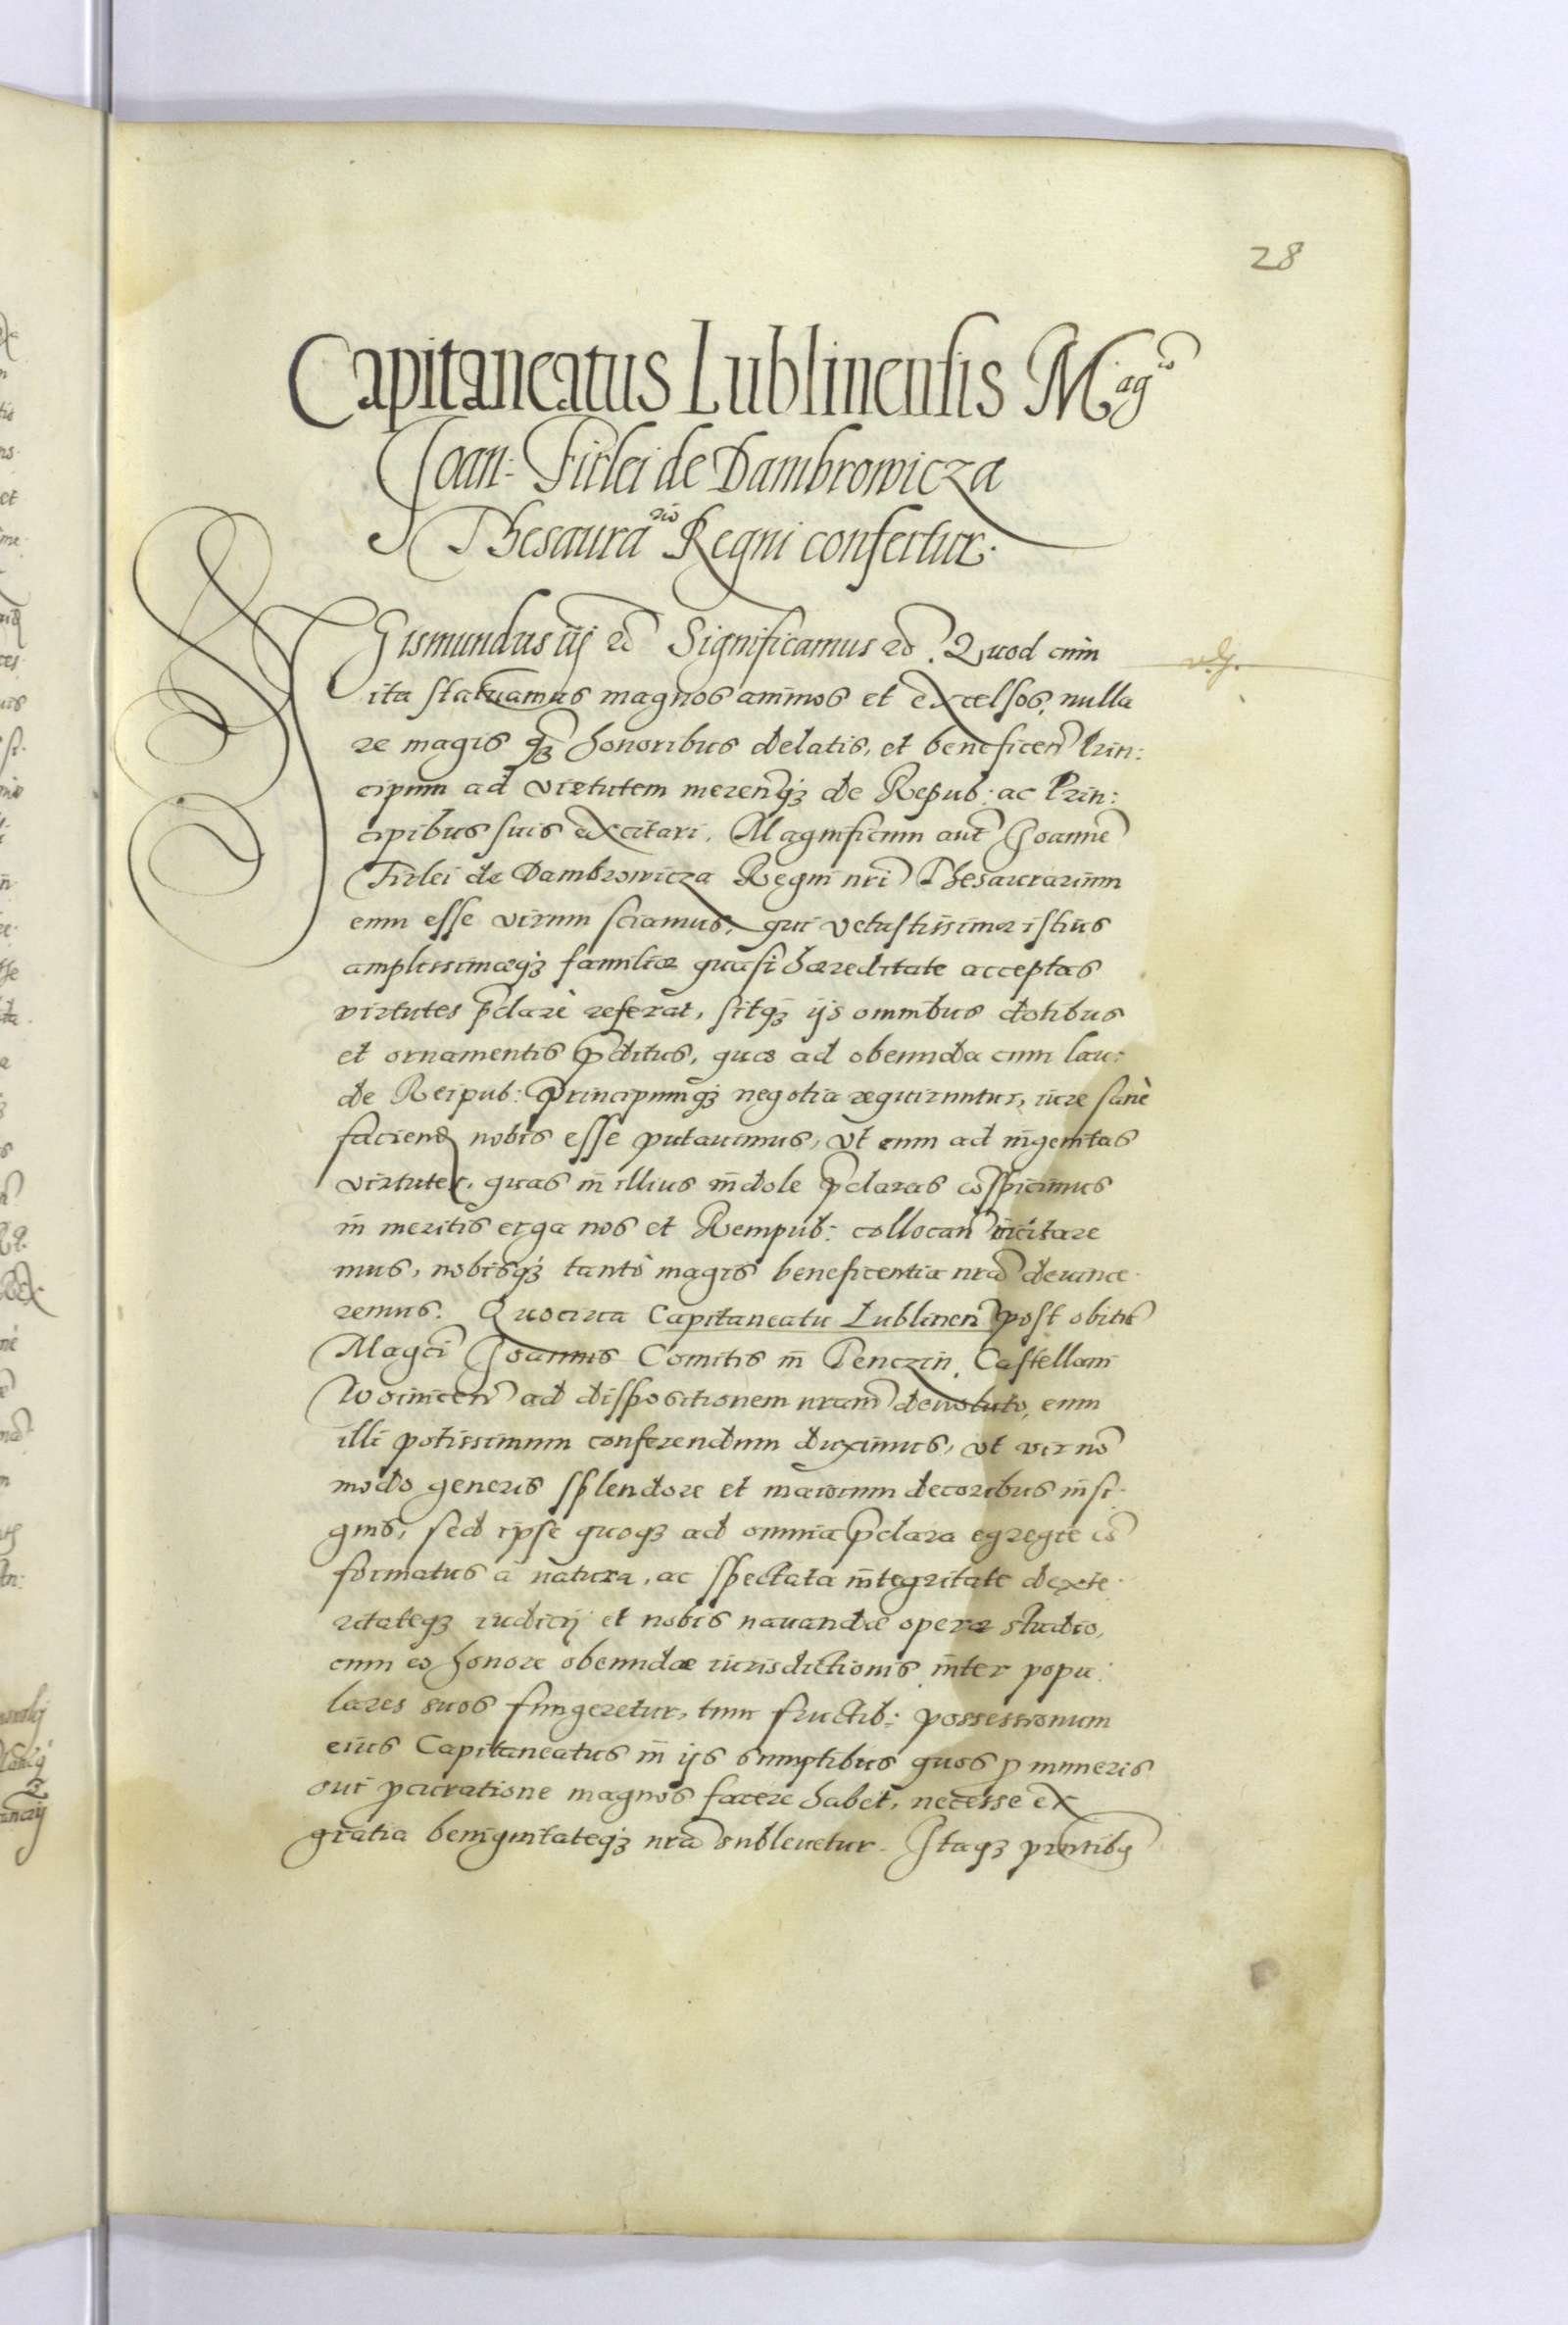 28
Capitaneatus Lublinensis Mag^co
Joan: Firlei de Dambrowicza
Thesaura^rio Regni confertur.
Sigismundus iij etc Significamus etc. Quod cum
ita statuamus magnos animos et excelsos, nulla
re magis q̃ȝ honoribus delatis, et beneficen̄ Prin:
cipum ad virtutem meren̄qȝ de Repub: ac Prin:
cipibus suis excitari. Magnificum aut̄ Joannē
Firlei de Dambrowicza Regni nrī Thesaurarium
eum esse virum sciamus, qui vetustissimæ istius
amplissimæqȝ familiæ quasi hæreditate acceptas
virtutes p̄clarè referat, sitqȝ ijs omnibus dotibus
et ornamentis p̄ditus, quæ ad obeunda cum lau:
de Reipub: Principumqȝ negotia requiruntur, iure sanè
faciend nobis esse putauimus, vt eum ad ingenitas
virtutes, quas in illius indole p̄claras cōspicimus
in meritis erga nos et Rempub: collocan̄ incitare
mus, nobisqȝ tantò magis beneficentia nrā deuince
remus. Quocirca Capitaneatu Lublinen̄ post obitū
Magcī Joannis Comitis in Tenczin, Castellani
Woinicen̄ ad dispositionem nram̄ deuoluto, eum
illi potissimum conferendum duximus, vt vir nō
modo generis splendore et maiorum decoribus insi
gnis, sed ipse quoqȝ ad omnia p̄clara egregie cō
formatus à natura, ac spectata integritate dexte
ritateqȝ iudicij et nobis nauandæ operæ studio,
cum eo honore obeundæ iurisdictionis inter popu:
lares suos fungeretur, tum fructib: possessionum
eius Capitaneatus in ijs sumptibus quos p muneris
sui pcuratione magnos facere habet, necesse ex
gratia benignitateqȝ nrā subleuetur. Itaqȝ prntibꝯ